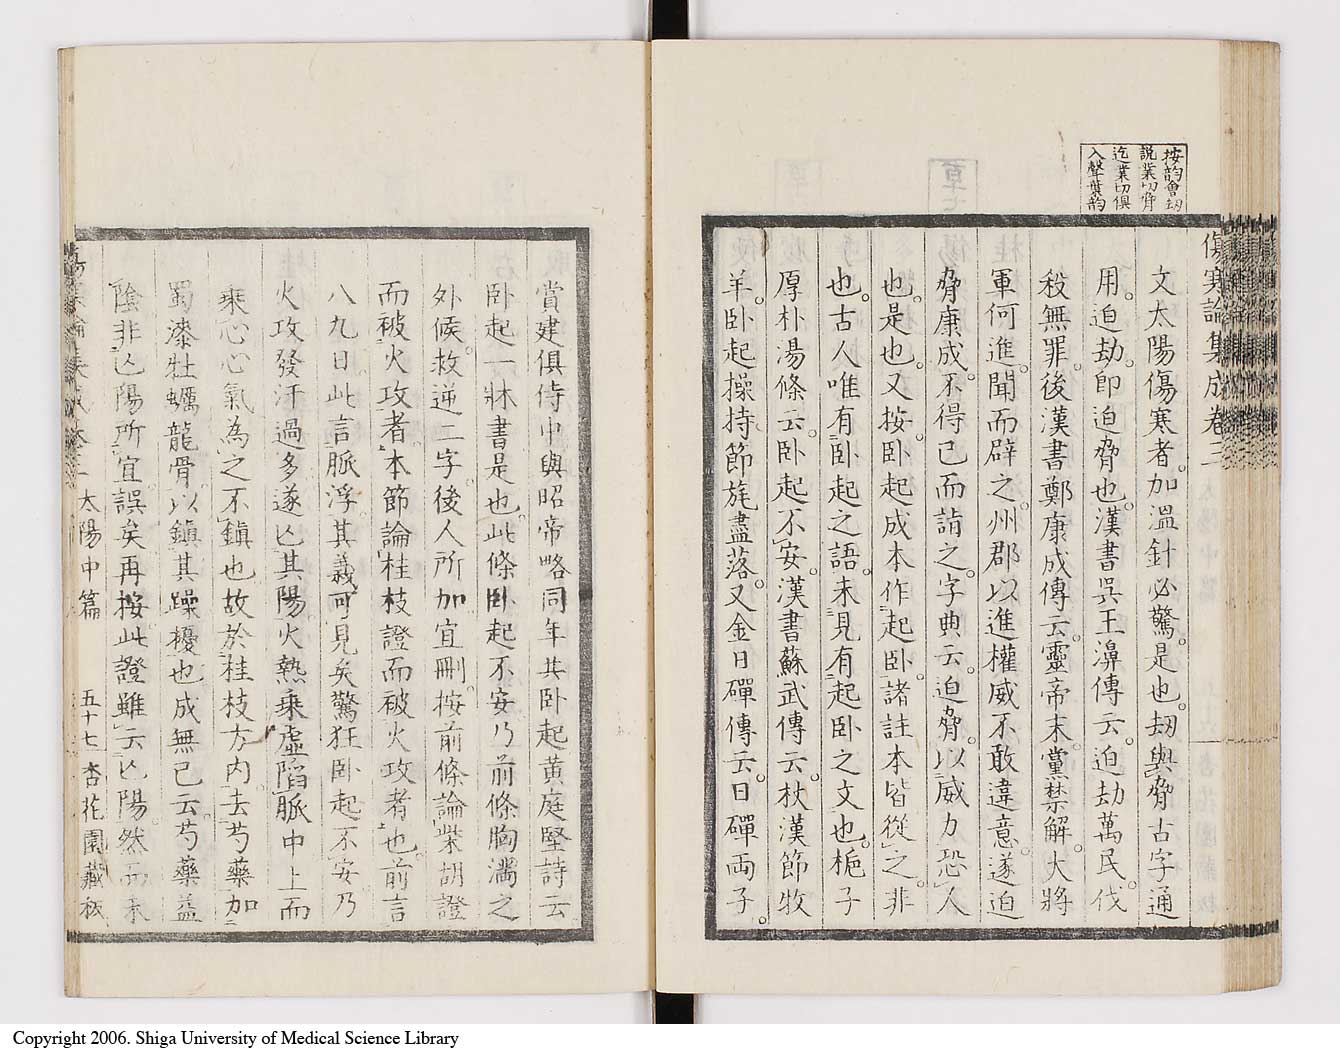 按韵會刧
説業切脅
迄業切俱
入聲葉韵
傷寒論集成卷三
文太陽傷寒者。加溫針必驚。是也。刼與脅古字通
用。迫劫。卽迫脅也。漢書吳王濞傳云。迫劫萬民。伐
殺無罪。後漢書鄭康成傳云。靈帝末。黨禁解。大將
軍何進。聞而辟之。州郡以進權威不敢違意。遂迫
脅康成。不得已而詣之。字典云。迫脅。以威力恐人
也。是也。又按。卧起成本作起卧。諸註本皆從之。非
也。古人唯有卧起之語。未見有起卧之文也。梔子
厚朴湯條云。卧起不安。漢書蘇武傳云。杖漢節牧
羊。卧起操持節旄盡落。又金日磾傳云。日磾両子。
賞建俱侍中與昭帝略同年共卧起黄庭堅詩云
卧起一牀書是也。此條卧起不安乃前條胸滿之
外候。救逆二字。後人所加宜刪。按前條論柴胡證
而被火攻者。本節論桂枝證而被火攻者也。前言
八九日此言脈浮。其義可見矣驚狂卧起不安乃
火攻發汗過多遂亾其陽火熱乗虛陷脈中上而
乗心心氣為之不鎮也故於桂枝方内去芍藥加
蜀漆牡蠣龍骨以鎮其躁擾也成無己云。芍藥益
陰非亾陽所宜誤矣再按此證雖云亾陽然
太陽中篇 五十七 杏花園藏板